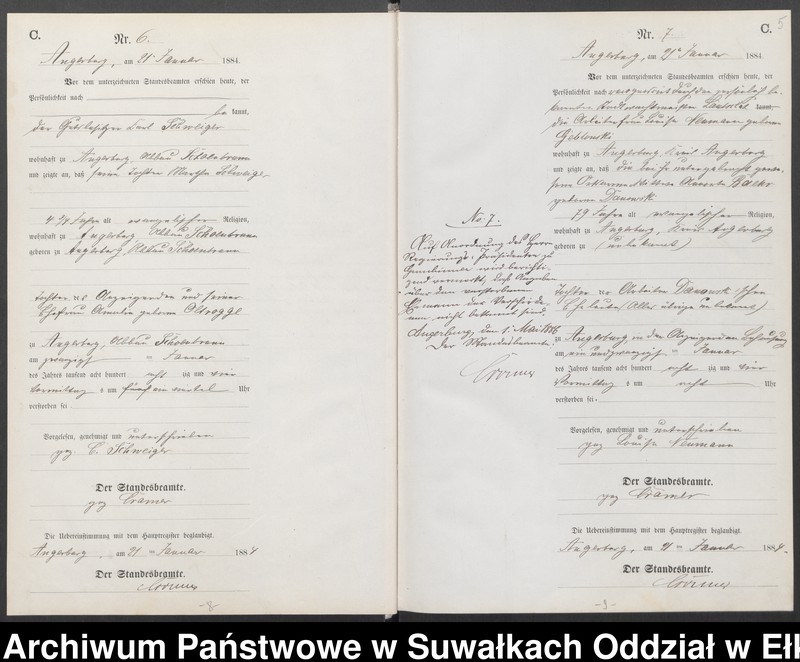 C.
Nr. 6.
Angerburg, am 21 Januar 1884.
Vor dem unterzeichneten Standesbeamten erschien heute, der
Persönlichkeit nach
be kannt,
der Gutsbesitzer Carl Schweiger
wohnhaft zu Angerburg, Abbau
und zeigte an, daß seine Tochter Martha Schweiger
4 3/4 Jahre alt evangelischer Religion,
wohnhaft zu Angerburg Abbau
geboren zu Angerburg, Abbau
Tochter des Anzeigenden und seiner
Ehefrau Amalia geborne
zu Angerburg, Abbau
am zwanzigst ten Januar
des Jahres tausend acht hundert acht zig und vier
Vormittags um fünf Uhr
verstorben sei.
Vorgelesen, genehmigt und unterschrieben
gez C. Schweiger
Der Standesbeamte.
gez Cramer
Die Uebereinstimmung mit dem Hauptregister beglaubigt.
Angerburg, am 21 ten Januar 1884
Der Standesbeamte.
Cramer
-8-
C.
5
Nr. 7
Angerburg, am 21ten Januar 1884.
Vor dem unterzeichneten Standesbeamten erschien heute, der
Persönlichkeit nach durch den persönlich be-
kannten kannt,
die Arbeiterfrau Louise Neumann geborne
wohnhaft zu Angerburg Kreis Angerburg
und zeigte an, daß die bei ihr
geborne Danowski
79 Jahre alt evangelischer Religion,
wohnhaft zu Angerburg, Kreis Angerburg
geboren zu (unbekannt)
Tochter der Arbeiter Danowski'schen
Eheleute (Alles übrige unbekannt)
zu Angerburg in der Anzeigenden Behausung
am ein und zwanzigst ten Januar
des Jahres tausend acht hundert acht zig und vier
Vormittags um acht Uhr
verstorben sei.
Vorgelesen, genehmigt und unterschrieben
gez Louise Neumann
Der Standesbeamte.
gez Cramer
Die Uebereinstimmung mit dem Hauptregister beglaubigt.
Angerburg, am 21 ten Januar 1884.
Der Standesbeamte.
Cramer
-9-
No. 7.
Auf Anordnung des Herrn
Regierungs-Präsidenten zu
Gumbinnen wird berichti-
gend vermerkt, daß Angaben
über den verstorbenen
Ehemann der Verstorbe-
nen nicht bekannt sind.
Angerburg, den 1. Mai 1886
Der Standesbeamte.
Cramer
Archiwum Państwowe w Suwałkach Oddział w Eł